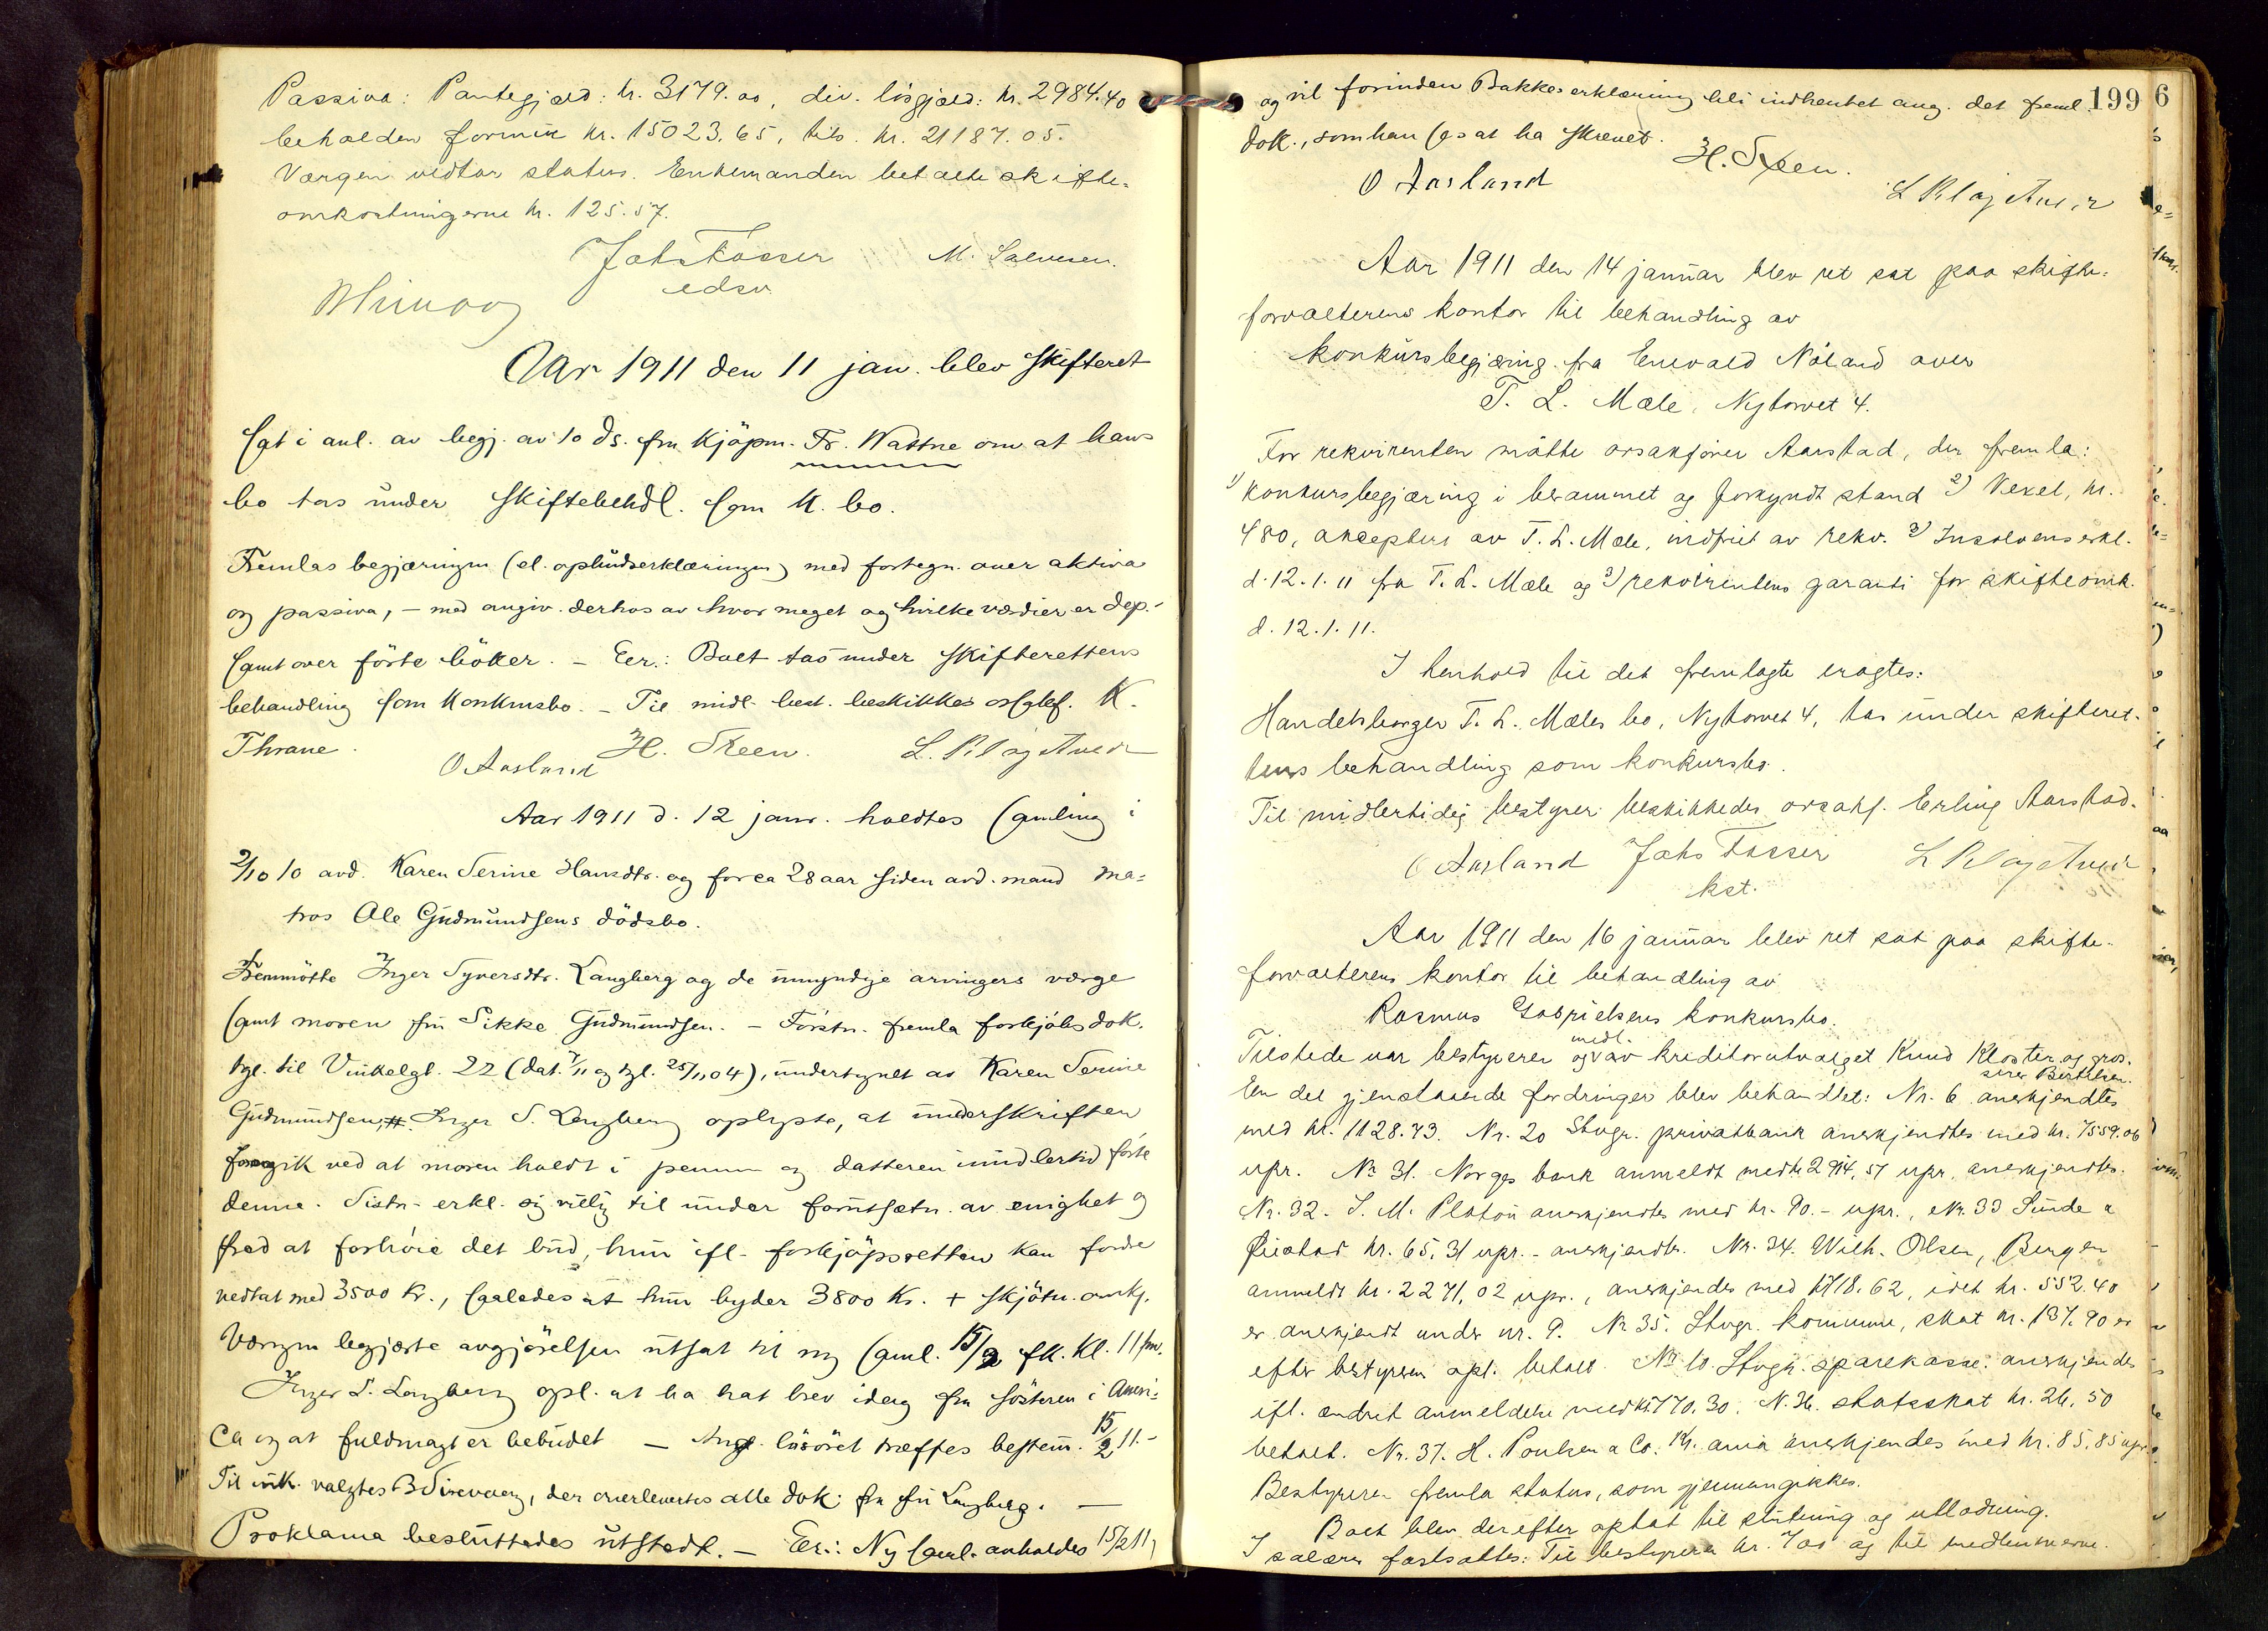 Passiva: Pantegjæld: kr. 3179.00, div. løsgjæld: kr. 2984.40
beholden formue kr. 15023.65, tils. kr. 21187.05.
Værgen vedtar status. Enkemanden betalte skifte-
omkostningerne kr. 125.57.
Johs Fasser M. Salvesen.
edsv
Aar 1911 den 11 jan. blev skifteret
sat i anl. av begj. av 10 ds. fra Kjøpm. Fr. Wattne om at hans
bo tas under skiftebehdl. som K. bo.
Fremlas begjæringen (el. opbudserklæringen) med fortegn. over aktiva
og passiva, – med angiv. derhos av hvor meget og hvilke værdier er dep.
samt over førte bøker. – Eer.: Boet tas under skifterettens
behandling som Konkursbo. – Til midl. best. beskikkes orsakf. K.
Thrane.
O Aasland H. Steen.
Aar 1911 d. 12 janr. holdtes samling i
2/10 10 avd. Karen Serine Hansdtr. og for ca 28 aar siden avd. mand ma-
tros Ole Gudmundsens dødsbo.
Fremmøtte Inger Syversdtr. Langberg og de umyndige arvingers værge
samt moren fru Sikke Gudmundsen. – Førstn. fremla forkjøbsdok.
tgl. til Vinkelgt. 22 (dat. 7/11 og tgl. 25/11 04), undertegnet av Karen Serine
Gudmundsen. Inger S. Langberg oplyste, at underskriften
foregik ved at moren holdt i pennen og datteren imidlertid førte
denne. Sistn. erkl. sig villig til under forutsætn. av enighet og
fred at forhøie det bud, hun ifl. forkjøpsretten kan fordre
vedtat med 3500 Kr., saaledes at hun byder 3800 Kr. + skjøtn. omk.
Værgen begjærte avgjørelsen utsat til ny saml. 15/2 fk. Kl. 11 fm.
Inger S. Langberg opl. at ha hat brev idag fra søsteren i Ameri-
ca og at fuldmagt er bebudet – Ang. løsøret træffes bestem. 15/2 11. –
Til ink. valgtes B Sirevaag, der overlevertes alle dok. fra fru Langberg. –
Proklama besluttedes utstedt. – Eer.: Ny saml. anholdes 15/2 11,
199 6
og vil forinden Bakkes erklæring bli indhentet ang. det freml.
dok., som han ses at ha skrevet.
O Aasland H. Steen.
Aar 1911 den 14 januar blev ret sat paa skifte-
forvalterens kontor til behandling av
konkursbegjæring fra Enevald Nöland over
T. L. Mæle, Nytorvet 4.
For rekvirenten møtte orsakfører Aarstad, der fremla:
1) konkursbegjæring i berammet og forkyndt stand 2) Vexel, kr.
480, akceptert av T. L. Mæle, indfriet av rekv. 3) Insolvenserkl.
d. 12.1.11 fra T. L. Mæle og 3) rekvirentens garanti for skifteomk.
d. 12.1.11.
I henhold til det fremlagte eragtes:
Handelsborger T. L. Mæles bo, Nytorvet 4, tas under skifteret-
tens behandling som konkursbo.
Til midlertidig bestyrer beskikkedes orsakf. Erling Aarstad.
O Aasland Johs Fasser
kst.
Aar 1911 den 16 januar blev ret sat paa skifte-
forvalterens kontor til behandling av
Rasmus Gabrielsens konkursbo.
Tilstede var bestyreren og medl. av kreditorutvalget Knud Kloster og gros-
serer Bertelsen.
En del gjenstaaende fordringer blev behandlet: Nr. 6 anerkjendtes
med kr. 1128.73. Nr. 20 Stvgr. privatbank anerkjendtes med kr. 7559.06
upr. Nr 31. Norges bank anmeldt med kr 2914,57 upr. anerkjendtes.
Nr. 32. S. M. Platou anerkjendtes med kr. 90.– upr., Nr. 33 Sunde &
kr. 65,31 upr. – anerkjendtes. Nr. 34. Wilh. Olsen, Bergen
anmeldt kr. 2271,02 upr., anerkjendes med 1718.62, idet kr. 552.40
er anerkjendt under nr. 9. Nr 35. Stvgr. kommune, skat kr. 137.90 er
efter bestyrerens opl. betalt. Nr 10 Stvgr. sparekasse: anerkjendes
ifl. ændret anmeldelse med kr. 770.30. N. 36. statsskat kr. 26,50
betalt. Nr. 37. H. Poulsen & Co. Kr.ania anerkjendes med kr. 85,85 upr.
Bestyreren fremla status, som gjennemgikkes.
Boet blev derefter optat til slutning og utlodning.
I salærer fastsattes: Til bestyreren kr. 700 og til medlemmerne